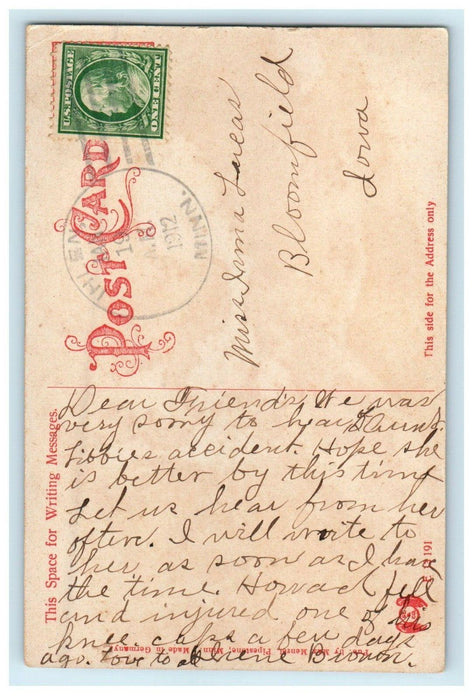 U.S. POSTAGE
ONE CENT
POST CARD
IHLEN
MINN.
1912
Miss Irma Lucas
Bloomfield
Iowa
This side for the Address only
This Space for Writing Messages.
Dear Friends We was
very sorry to hear Aunt
Libbies accident. Hope she
is better by this time
Let us hear from her
often. I will write to
her as soon as I have
the time. Howard fell
and injured one of his
knee caps a few days
ago. love to all Brown.
Pipestone, Minn. Made in Germany
191